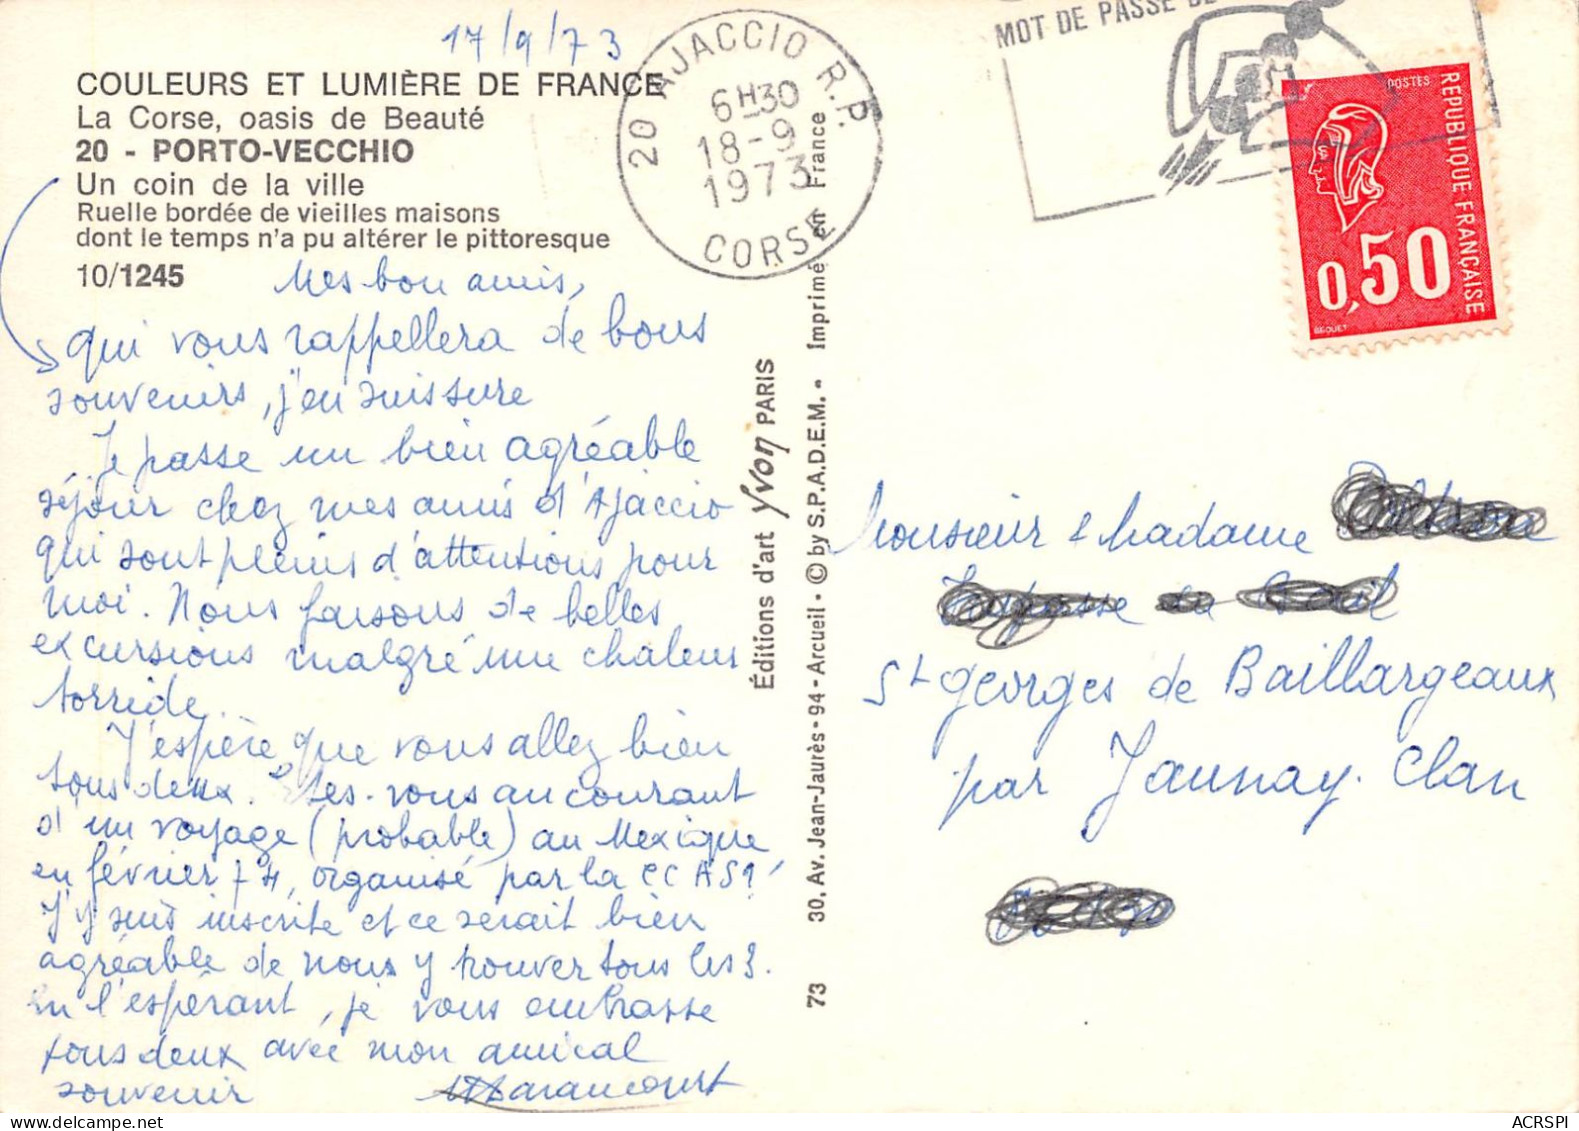 17/9/73
COULEURS ET LUMIÈRE DE FRANCE
La Corse, oasis de Beauté
20 - PORTO-VECCHIO
Un coin de la ville
Ruelle bordée de vieilles maisons
dont le temps n'a pu altérer le pittoresque
10/1245
Mes bon amis,
qui vous rappellera de bons
souvenirs, j'en suis sure
Je passe un bien agréable
séjour chez mes amis d'Ajaccio
qui sont pleins d'attentions pour
moi. Nous faisons de belles
excursions malgré une chaleur
torride.
J'espère que vous allez bien
tous deux. Etes-vous au courant
d'un voyage (probable) au Mexique
en février 74, organisé par la CCAS?
J'y suis inscrite et ce serait bien
agréable de nous y trouver tous les 3.
En l'espérant, je vous embrasse
tous deux avec mon amical
souvenir
20 AJACCIO R.P.
6H30
18-9
1973
CORSE
MOT DE PASSE
POSTES
REPUBLIQUE FRANÇAISE
0,50
BEQUET
Éditions d'art Yvon PARIS
73 30, Av. Jean-Jaurès - 94 - Arcueil - © by S.P.A.D.E.M. - Imprimé en France
Monsieur & Madame
St Georges de Baillargeaux
par Jaunay-Clan
ACRSPI